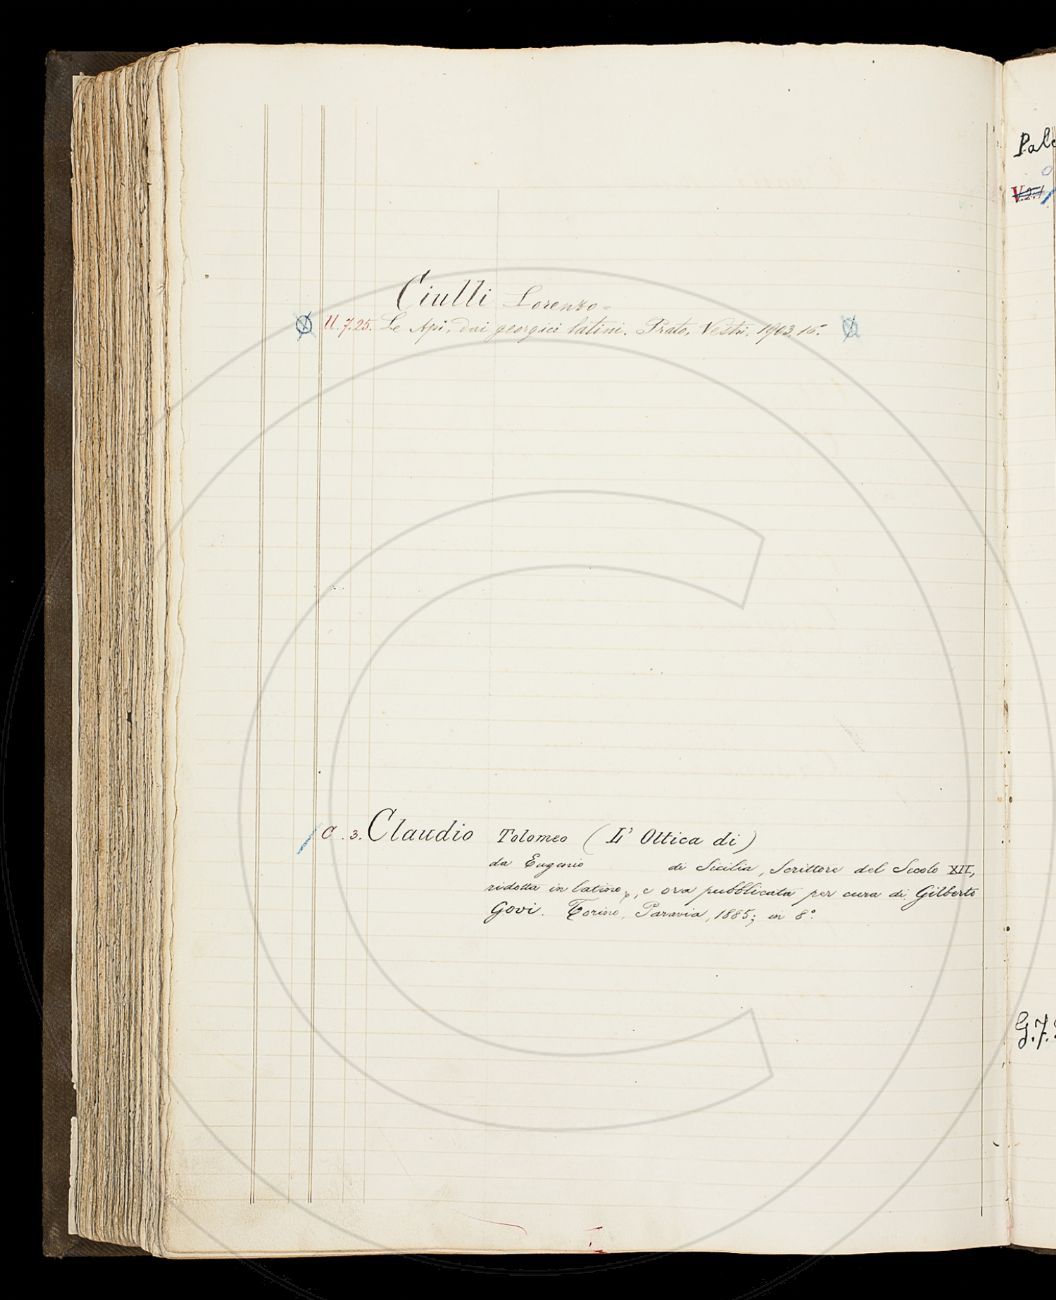 Ciulli Lorenzo.
U.7.25. Le Api, dai georgici latini. Prato, Vestri. 1903. 16°.
C. 3. Claudio Tolomeo (L' Ottica di)
da Eugenio di Sicilia, Scrittore del Secolo XII,
ridotta in latino, e ora pubblicata per cura di Gilberto
Govi. Torino, Paravia, 1885; in 8°.
Pal
V.2.1
G.7.